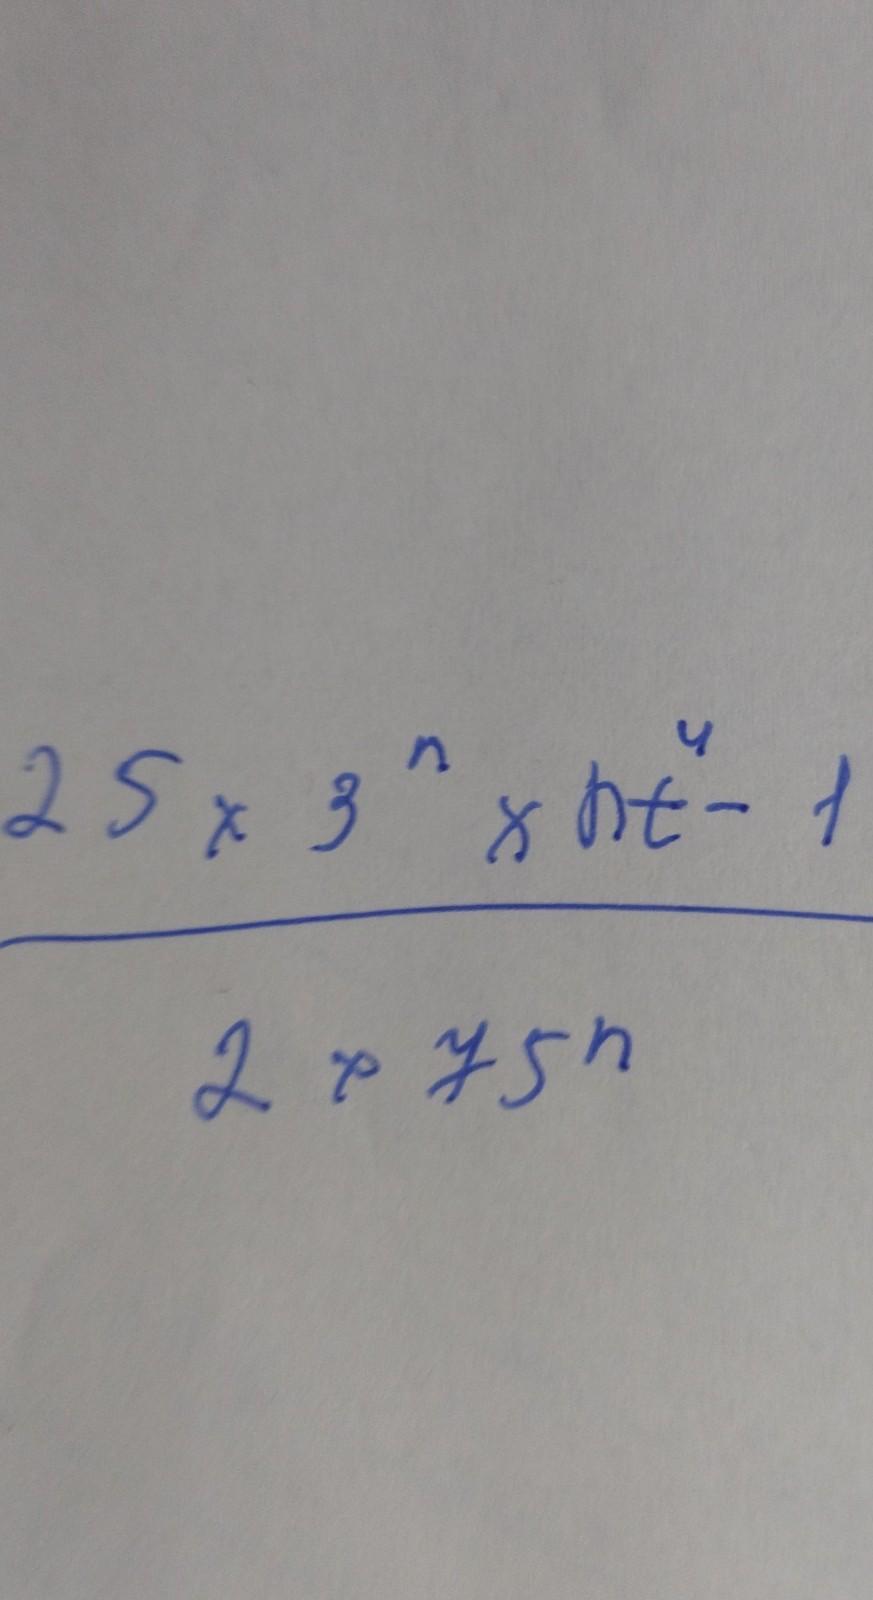 25 x 3ⁿ x nt⁴ - 1
2 x 75ⁿ